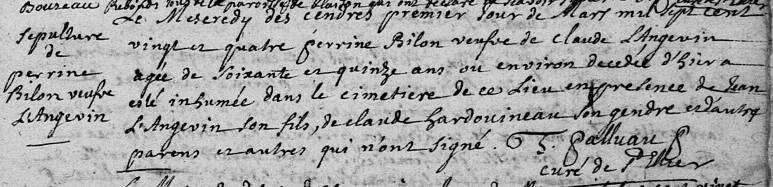 sepulture
de
perrine
Bilon veufve
L'Angevin
Le Mescredy des cendres premier Jour de Mars mil sept cent
vingt et quatre perrine Bilon veufve de claude L'Angevin
agée de soixante et quinze ans ou environ decedée d'hier a
esté inhumée dans le cimetiere de ce Lieu en presence de Jean
L'Angevin son fils, de claude hardouineau son gendre et d'autres
parens et autres qui n'ont signé.
curé de